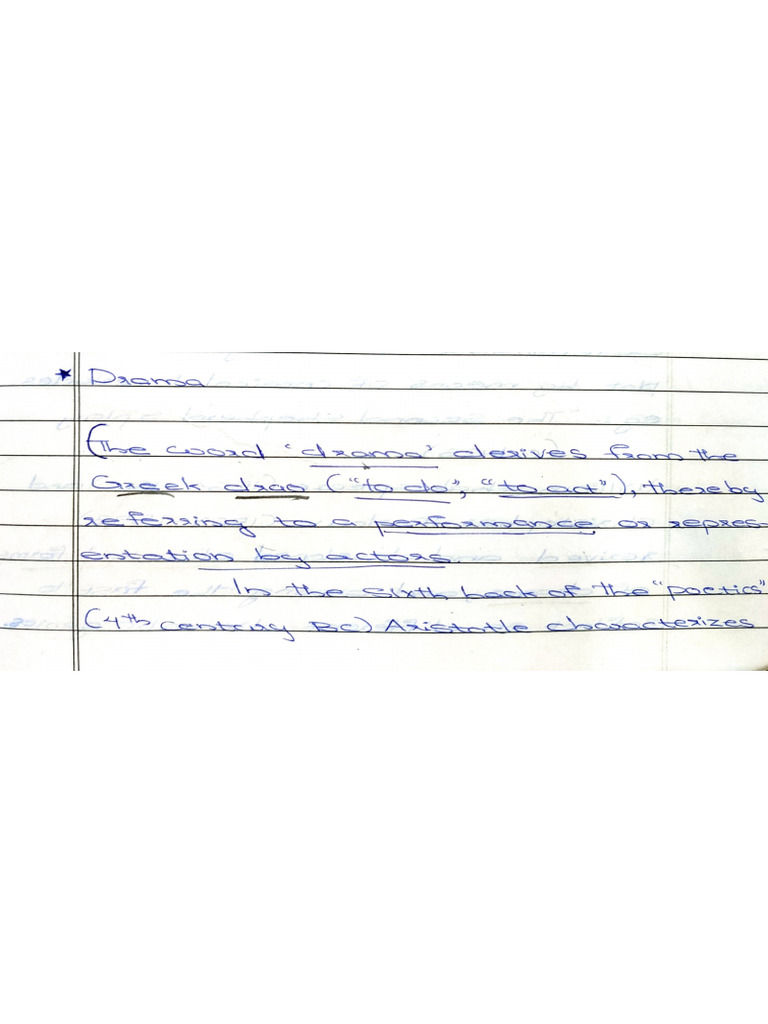 ★ Drama
(The word 'drama' derives from the
Greek drao ("to do", "to act"), thereby
referring to a performance or repres-
entation by actors.
In the sixth book of the "poetics"
(4th century BC) Aristotle characterizes